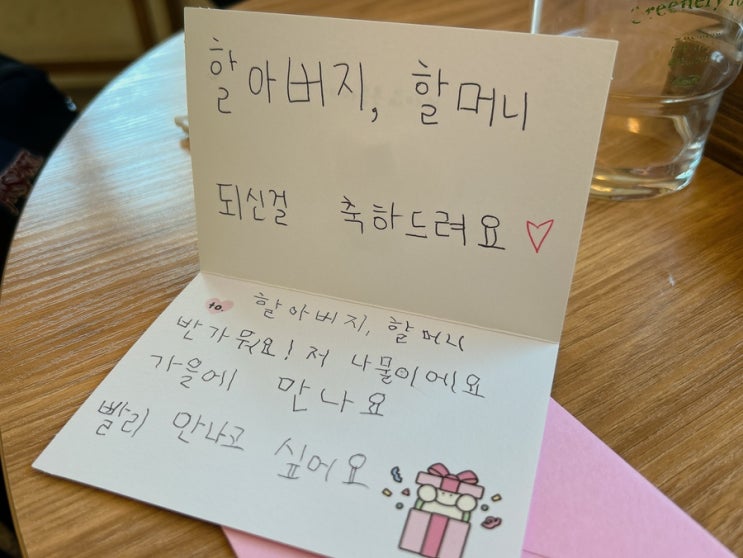 할아버지, 할머니
되신걸 축하드려요
to. 할아버지, 할머니
반가워요! 저 나물이에요
가을에 만나요
빨리 만나고 싶어요
Greenery